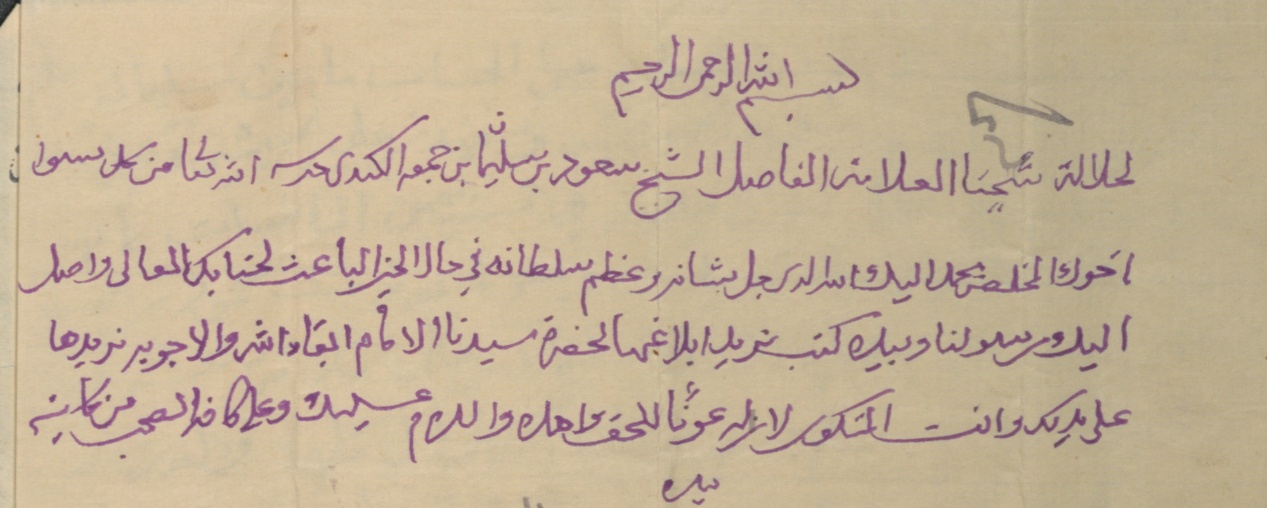 بسم الله الرحمن الرحيم
لجلالة شيخنا العلامة الفاضل الشيخ سعود بن سليمان بن جمعه الكندي حرسه الله تعالى من كل سوء
اخوك المخلص يحمد اليك الله الذي جل شانه وعظم سلطانه في حال الخير الباعث لجنابك العالي واصل
اليك رسولنا وبيده كتب نريد ابلاغها لحضرة سيدنا الامام ابقاه الله والاجوبه نريدها
على يديك وانت المشكور لازلت عونًا للحق واهله والسلام عليك وعلى كافة الصحب من كاتبه
بيده